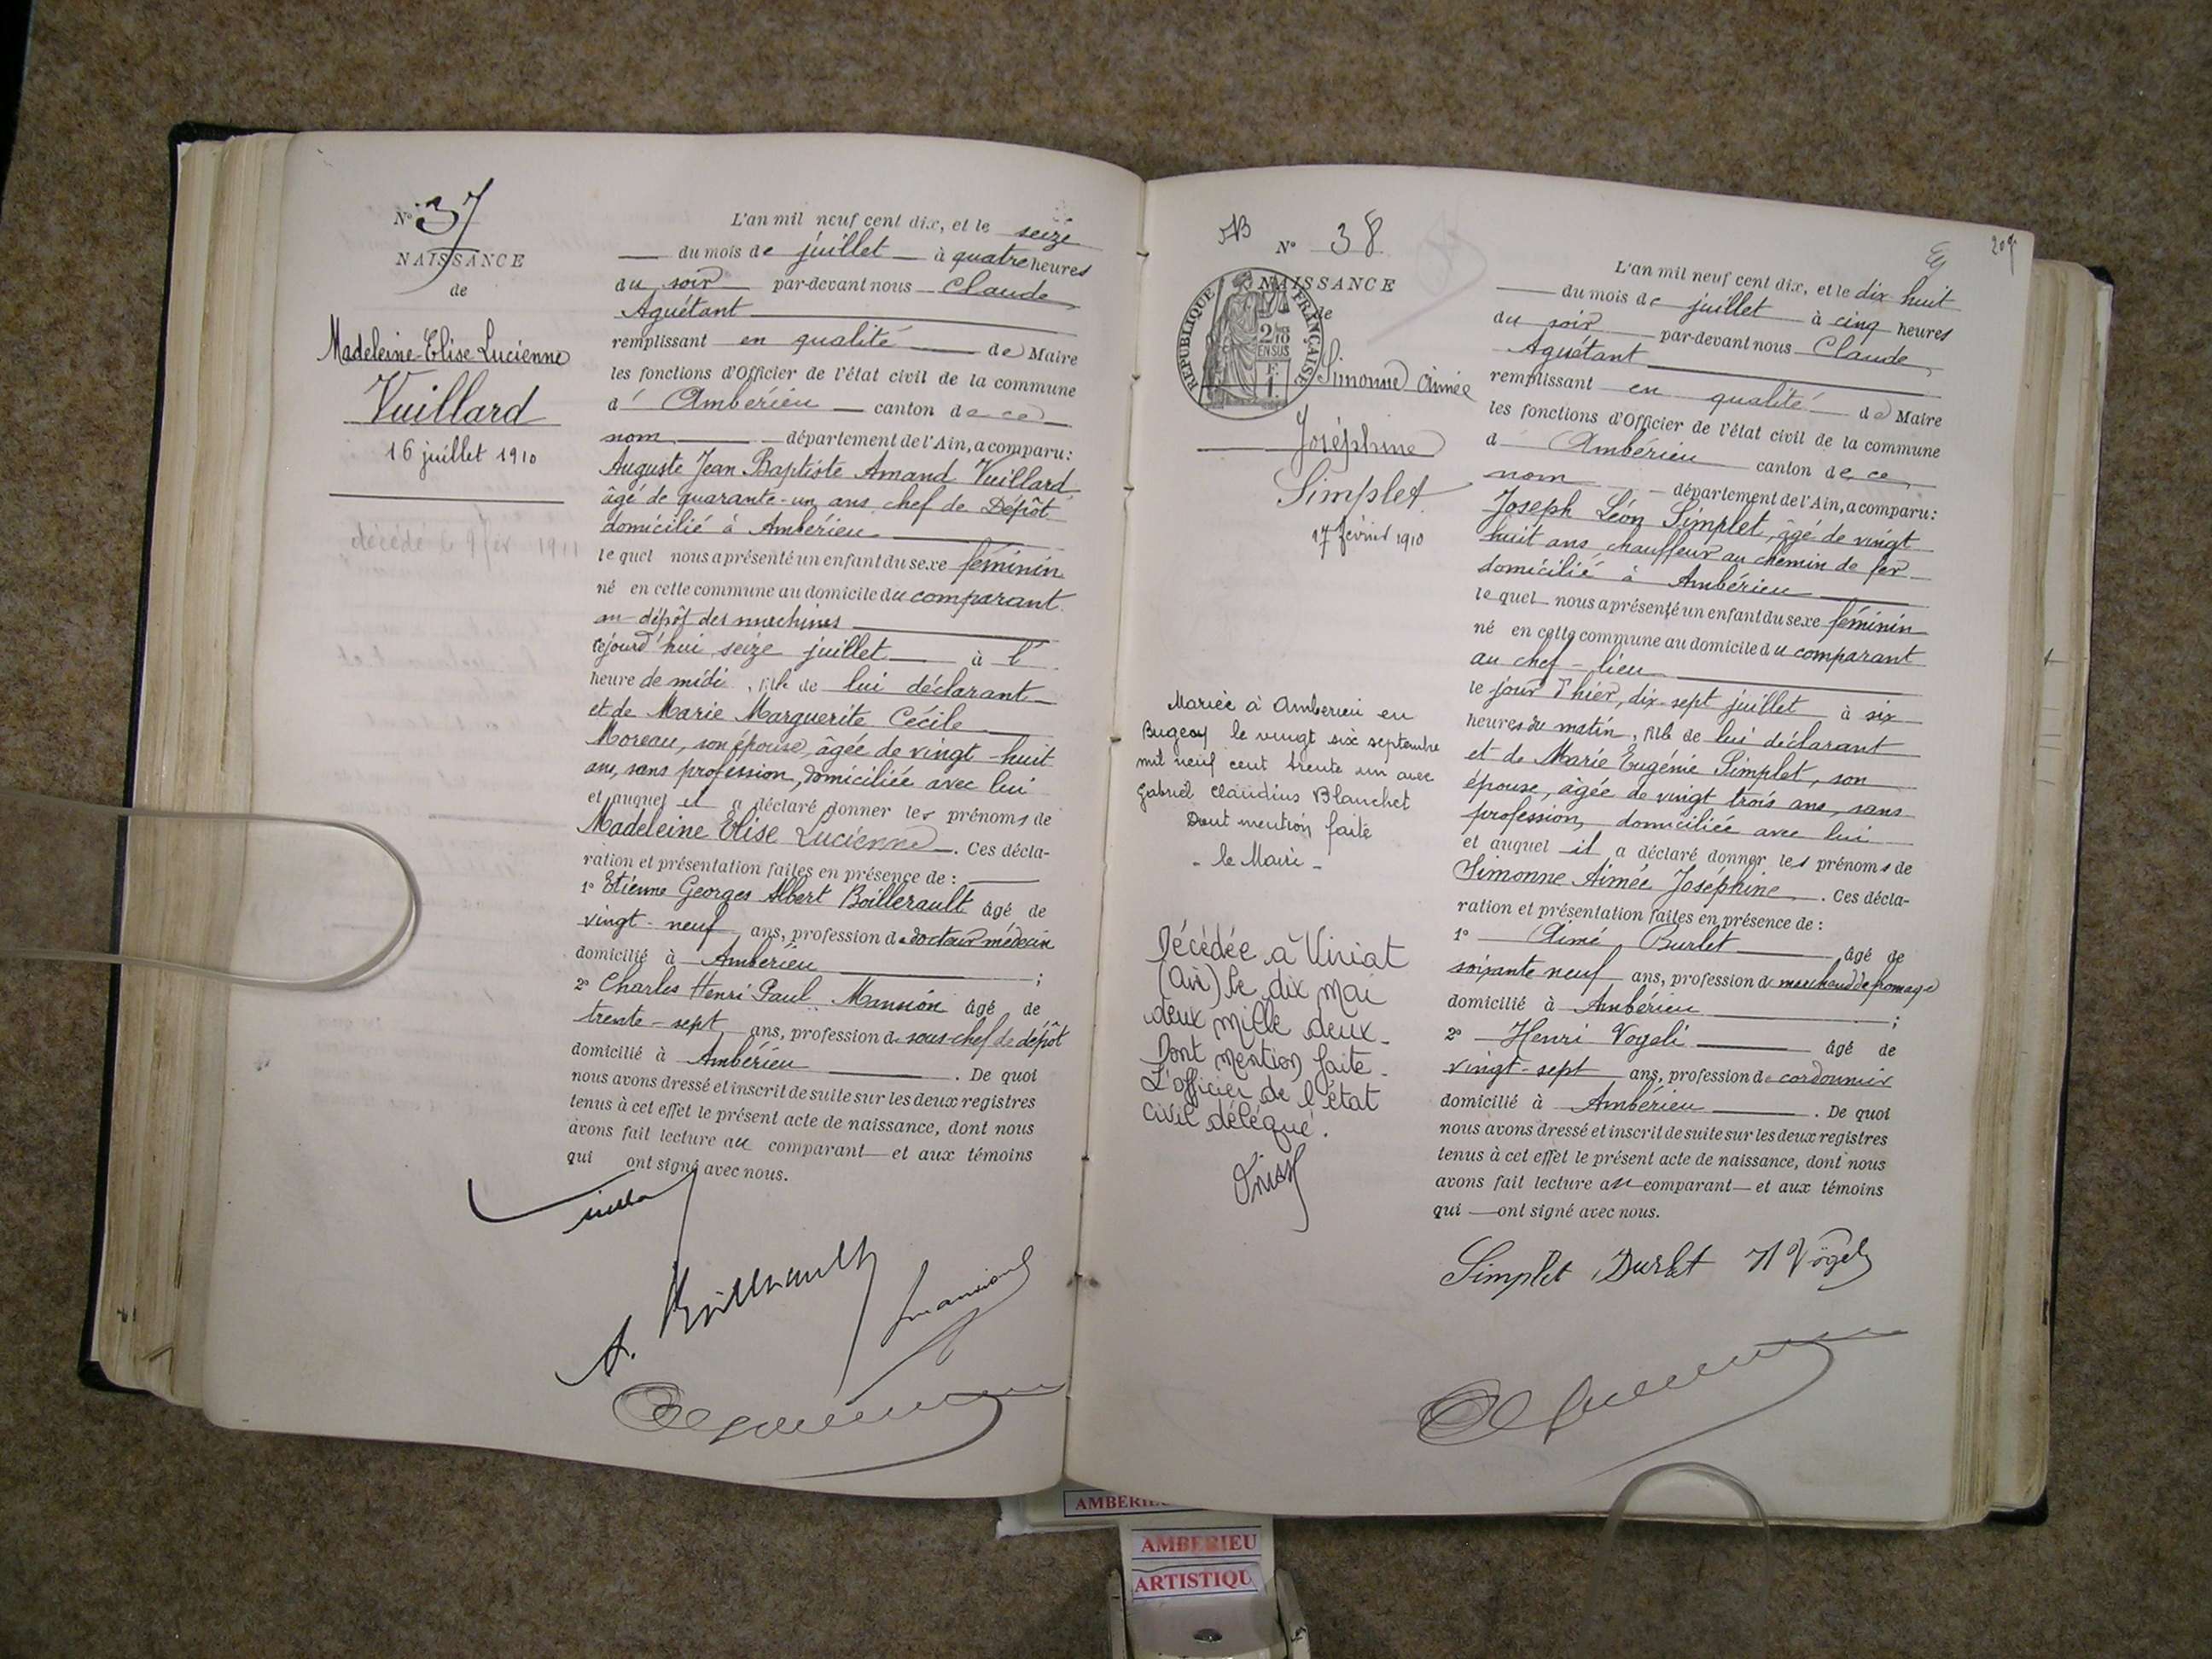 N° 37
NAISSANCE
de
Madeleine Elise Lucienne
Vuillard
16 juillet 1910
décédé le 9 fév 1911
L'an mil neuf cent dix, et le seize
du mois de juillet à quatre heures
du soir par-devant nous Claude
Aguétant
remplissant en qualité de Maire
les fonctions d'Officier de l'état civil de la commune
d' Ambérieu canton de ce
nom département de l'Ain, a comparu:
Auguste Jean Baptiste Amand Vuillard
âgé de quarante-un ans, chef de Dépôt
domicilié à Ambérieu
le quel nous a présenté un enfant du sexe féminin
né en cette commune au domicile du comparant
au dépôt des machines
cejourd'hui seize juillet à l'
heure de midi, fille de lui déclarant
et de Marie Marguerite Cécile
Moreau, son épouse, âgée de vingt-huit
ans, sans profession, domiciliée avec lui
et auquel il a déclaré donner les prénoms de
Madeleine Elise Lucienne. Ces décla-
ration et présentation faites en présence de :
1° Etienne Georges Albert Boillerault âgé de
vingt-neuf ans, profession de docteur médecin
domicilié à Ambérieu ;
2° Charles Henri Paul Mansion âgé de
trente-sept ans, profession de sous-chef de dépôt
domicilié à Ambérieu. De quoi
nous avons dressé et inscrit de suite sur les deux registres
tenus à cet effet le présent acte de naissance, dont nous
avons fait lecture au comparant et aux témoins
qui ont signé avec nous.
A. Boillerault
N° 38
NAISSANCE
de
REPUBLIQUE FRANÇAISE
2/10 EN SUS
Simonne Aimée
Joséphine
Simplet
17 février 1910
Mariée à Amberieu en
Bugey le vingt six septembre
mil neuf cent trente un avec
Gabriel Claudius Blanchet
Dont mention faite
- le Maire -
Décédée à Viriat
(Ain) le dix mai
deux mille deux.
Dont mention faite.
L'officier de l'état
civil délégué.
209
L'an mil neuf cent dix, et le dix huit
du mois de juillet à cinq heures
du soir par-devant nous Claude
Aguétant
remplissant en qualité de Maire
les fonctions d'Officier de l'état civil de la commune
d Ambérieu canton de ce
nom département de l'Ain, a comparu:
Joseph Léon Simplet, âgé de vingt
huit ans, chauffeur au chemin de fer
domicilié à Ambérieu
le quel nous a présenté un enfant du sexe féminin
né en cette commune au domicile du comparant
au chef-lieu
le jour d'hier, dix-sept juillet à six
heures du matin, fille de lui déclarant
et de Marie Eugénie Simplet, son
épouse, âgée de vingt trois ans, sans
profession, domiciliée avec lui
et auquel il a déclaré donner les prénoms de
Simonne Aimée Joséphine. Ces décla-
ration et présentation faites en présence de :
1° Aimé Burlet âgé de
soixante neuf ans, profession de marchand de fromage
domicilié à Ambérieu ;
2° Henri Vogeli âgé de
vingt-sept ans, profession de cordonnier
domicilié à Ambérieu. De quoi
nous avons dressé et inscrit de suite sur les deux registres
tenus à cet effet le présent acte de naissance, dont nous
avons fait lecture au comparant et aux témoins
qui ont signé avec nous.
Simplet Burlet H Vögeli
AMBERIEU
AMBERIEU
ARTISTIQU